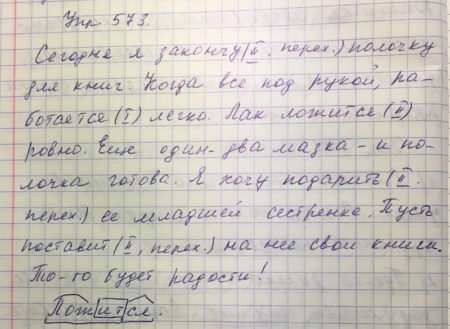 Упр. 573.
Сегодня я закончу (II, перех.) полочку
для книг. Когда все под рукой, ра-
ботается (I) легко. Лак ложится (II)
ровно. Еще один-два мазка - и по-
лочка готова. Я хочу подарить (II,
перех.) ее младшей сестренке. Пусть
поставит (II, перех.) на нее свои книги.
То-то будет радости!
Ложится.